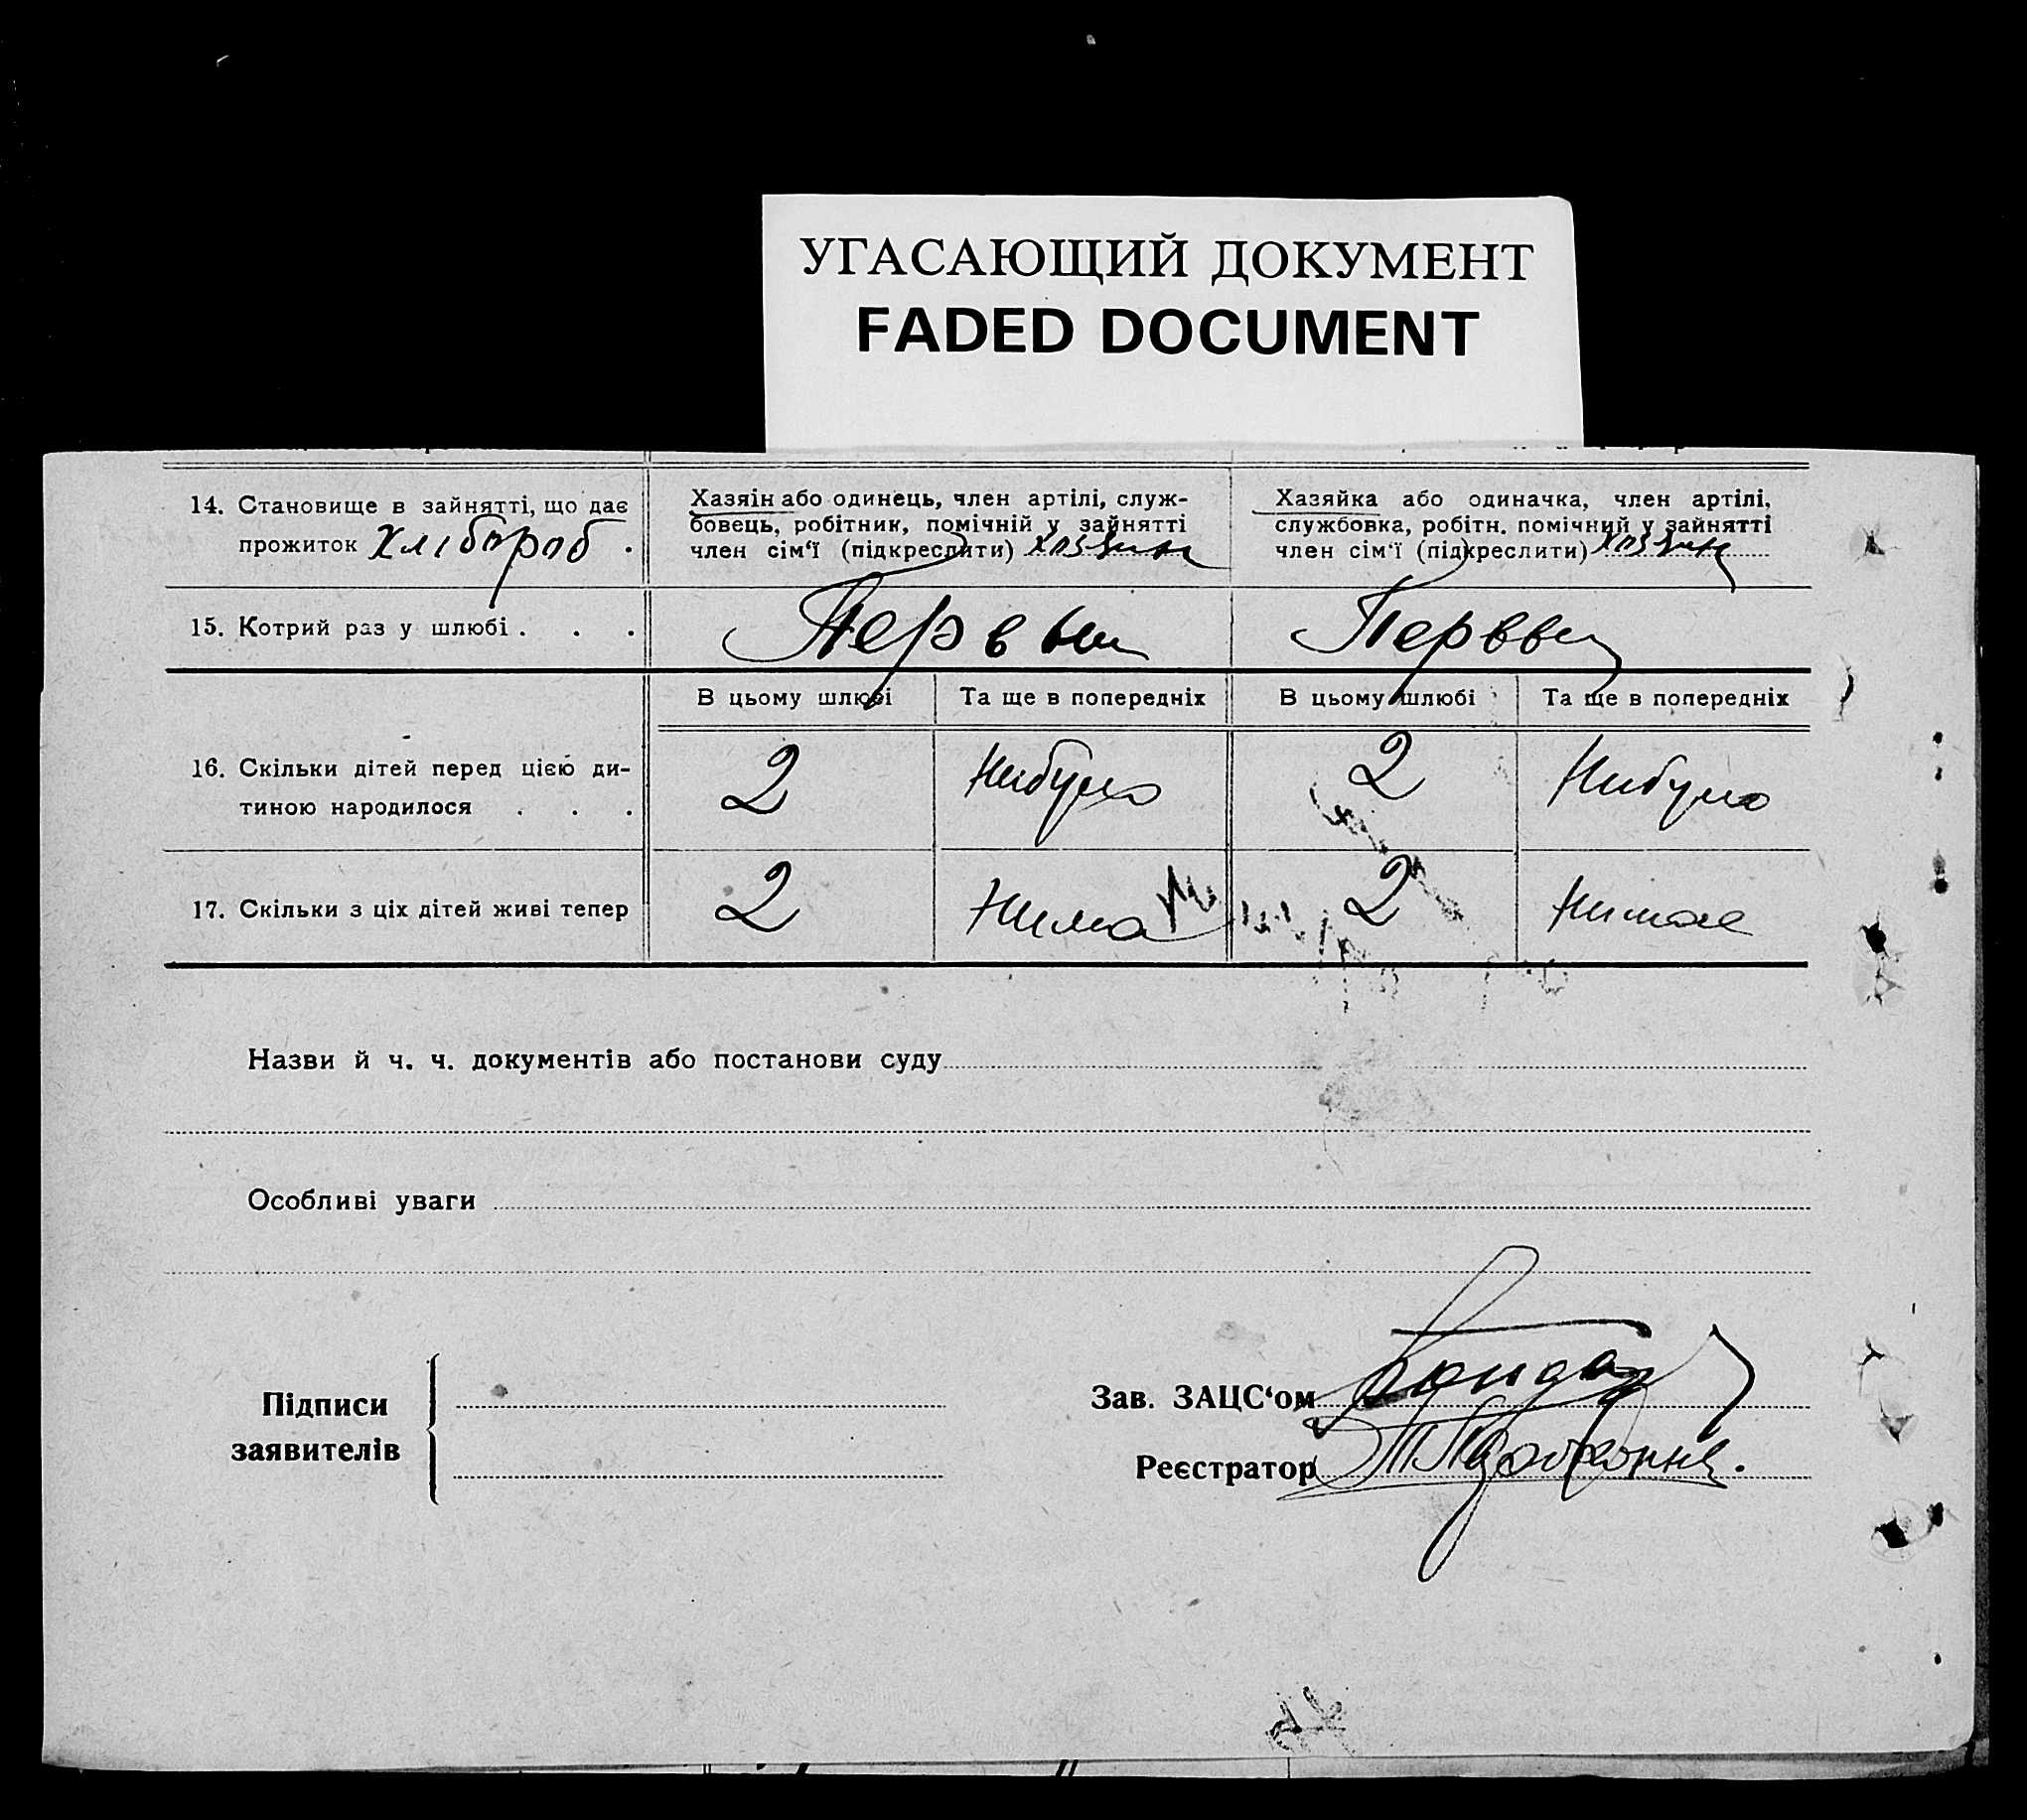 УГАСАЮЩИЙ ДОКУМЕНТ
FADED DOCUMENT
14. Становище в зайнятті, що дає
прожиток Хлібороб .
Хазяїн або одинець, член артілі, служ-
бовець, робітник, помічній у зайнятті
член сім'ї (підкреслити)
Хазяйка або одиначка, член артілі,
службовка, робітн. помічний у зайнятті
член сім'ї (підкреслити)
15. Котрий раз у шлюбі . . .
Первый
В цьому шлюбі Та ще в попередніх В цьому шлюбі Та ще в попередніх
16. Скільки дітей перед цією ди-
тиною народилося . . .
2 Нибуло 2 Нибуло
17. Скільки з ціх дітей живі тепер 2 Нима 2 Нимае
Назви й ч. ч. документів або постанови суду
Особливі уваги
Підписи
заявителів
Зав. ЗАЦС'ом
Реєстратор